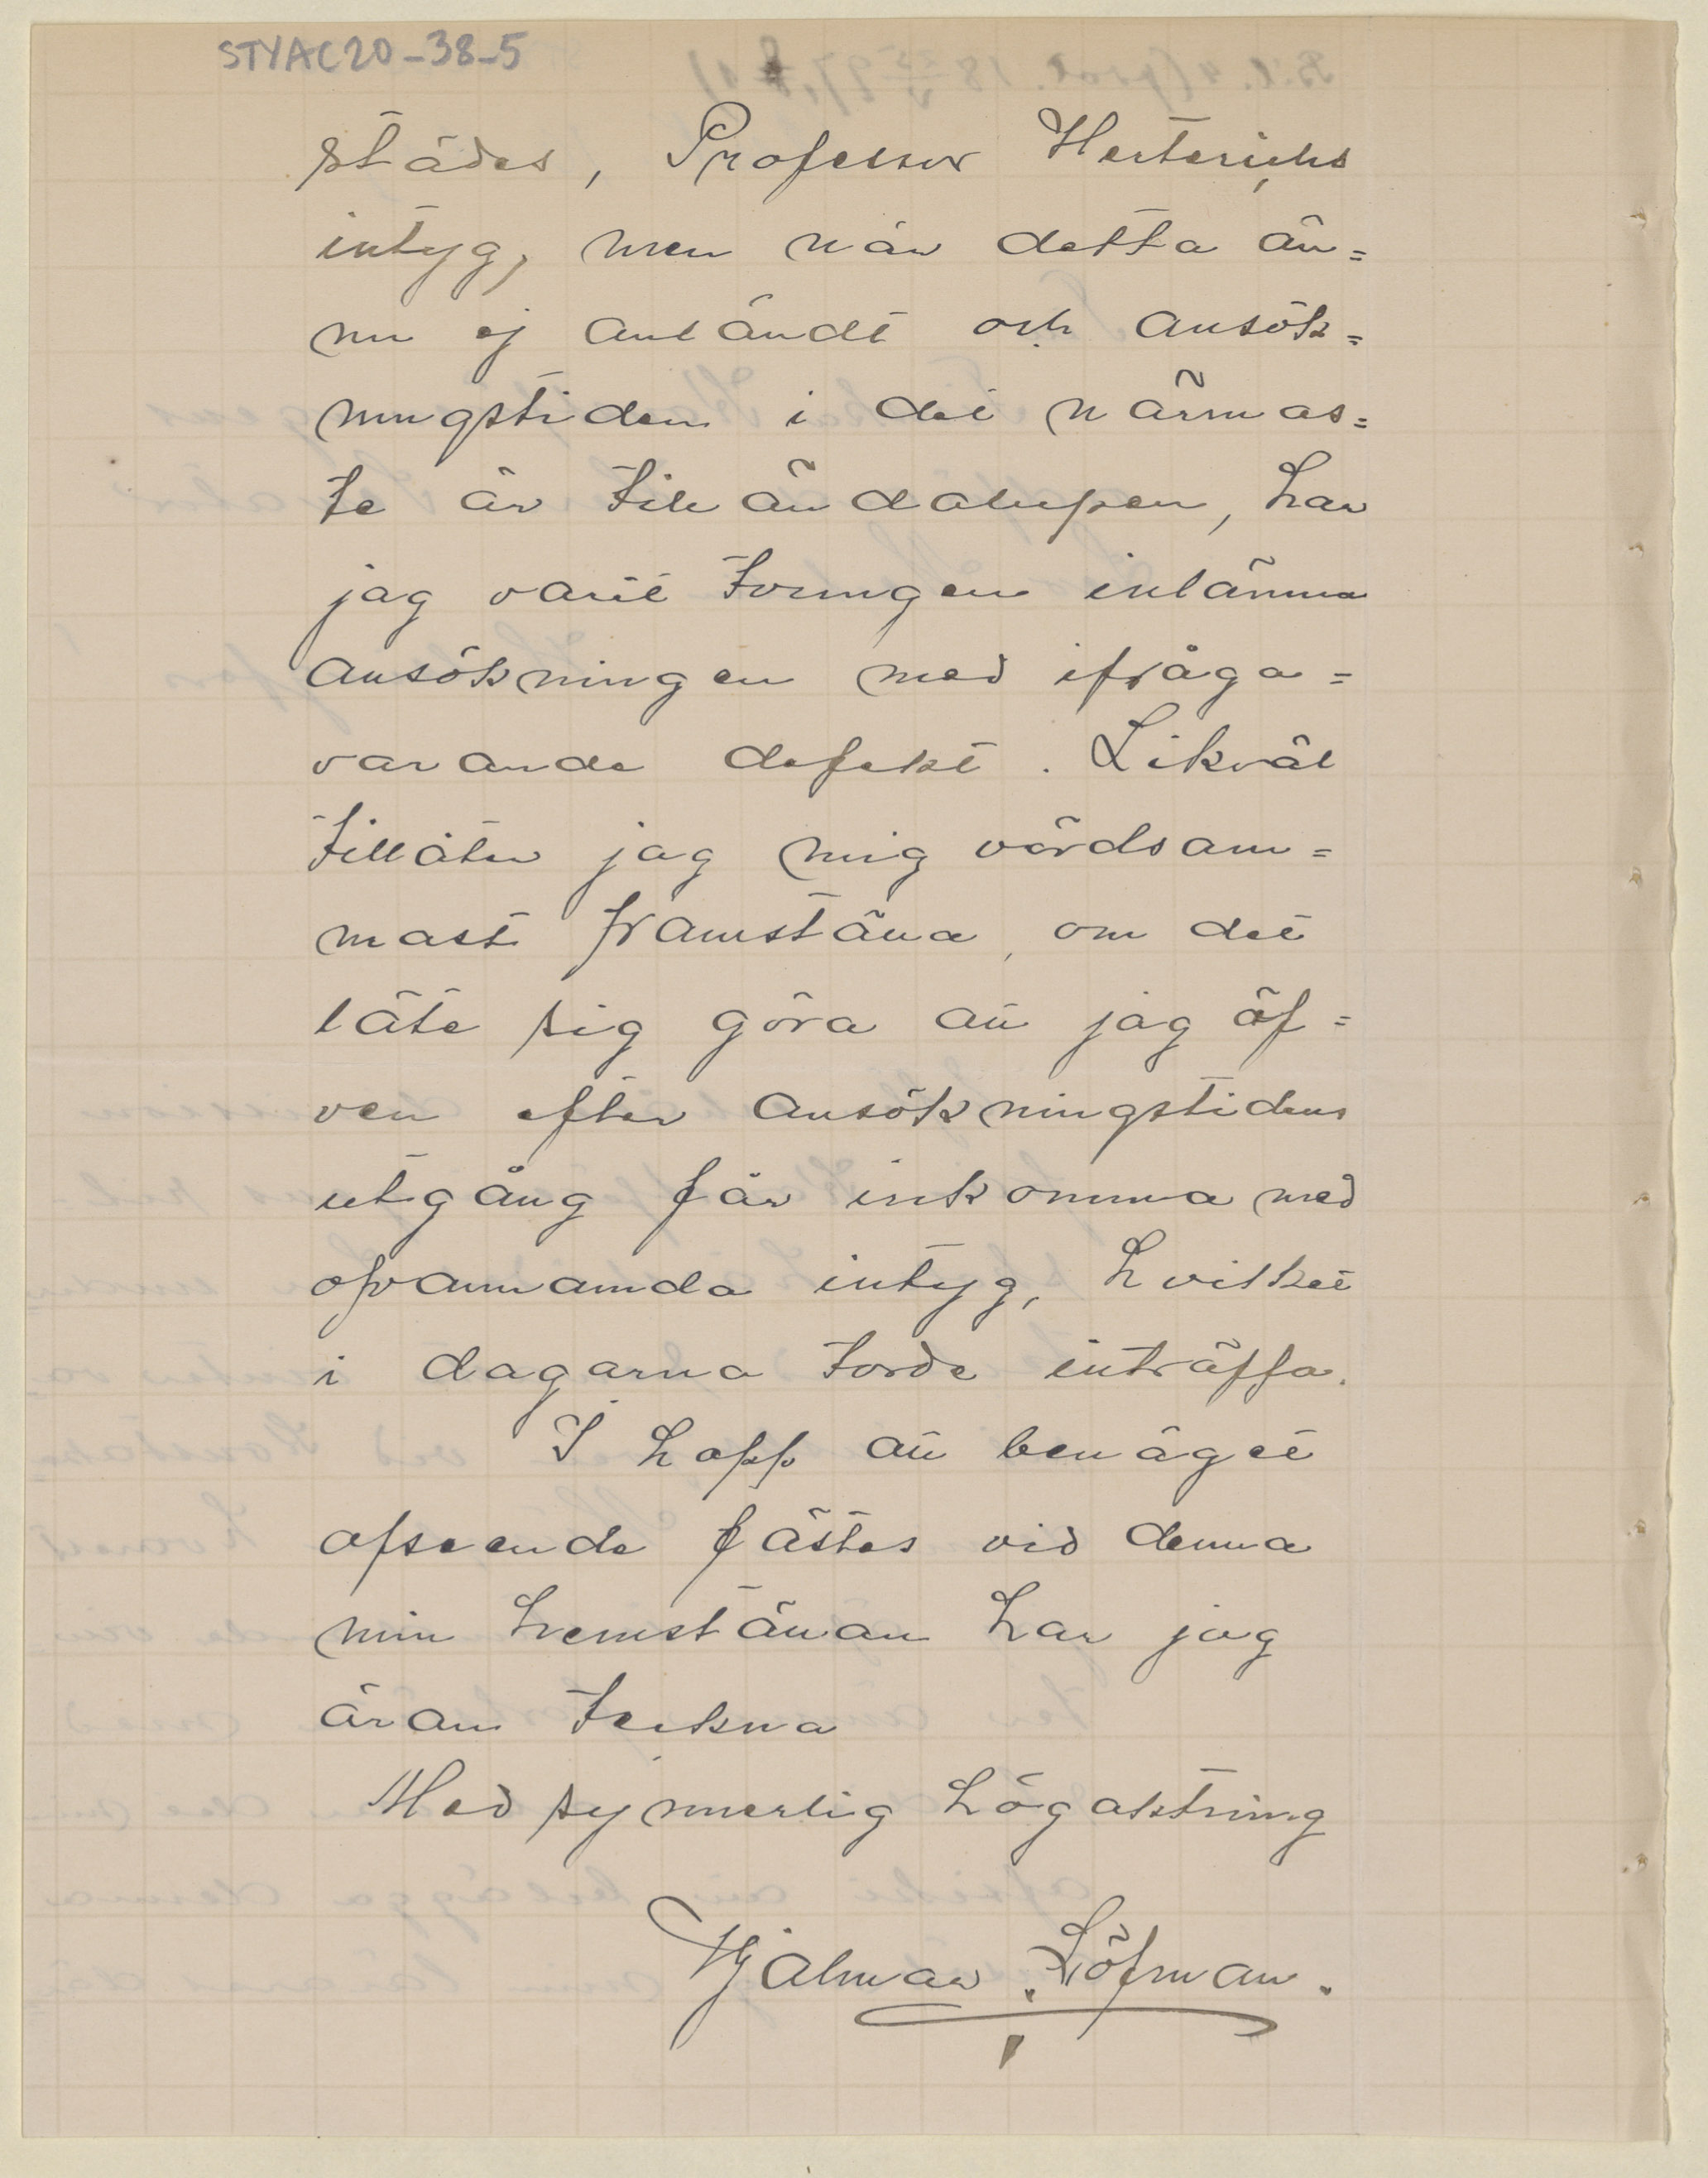 STYAC20-38-5
städes, Professor Herterichs
intyg, men när detta än=
nu ej anländt och ansök=
ningstiden i det närmas=
te är tilländalupen, har
jag varit tvungen inlämna
ansökningen med ifråga=
varande defekt. Likväl
tillåter jag mig vördsam=
mast framställa, om det
läte sig göra att jag äf=
ven efter ansökningstidens
utgång får inkomma med
ofvannämnda intyg, hvilket
i dagarna torde inträffa.
I hopp att benäget
afseende fästes vid denna
min hemställan har jag
äran teckna
Med synnerlig högaktning
Hjalmar Löfman.